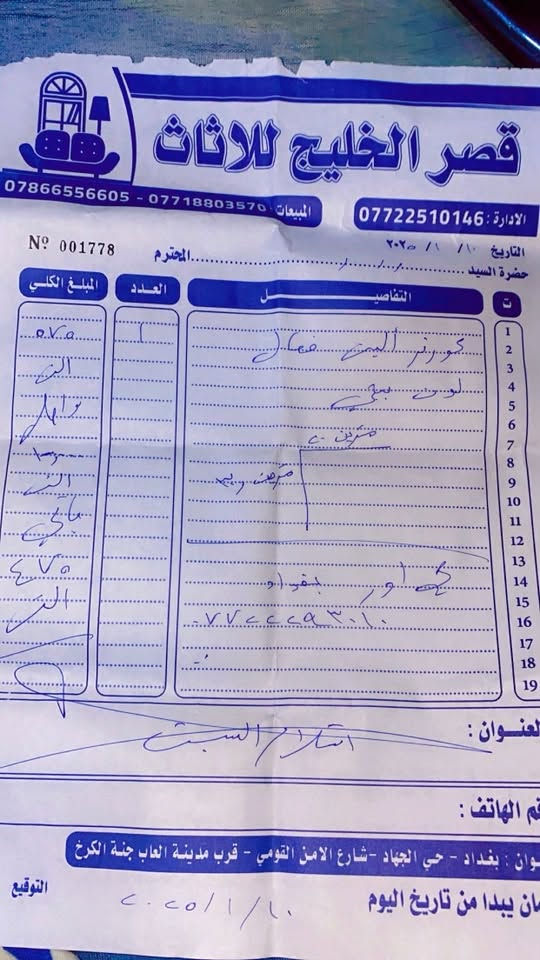 قصر الخليج للاثاث
الادارة : 07722510146
المبيعات : 07718803570 - 07866556605
التاريخ ١٠ / ١ / ٢٠٢٥
Nº 001778
حضرة السيد ........ المحترم
ت التفاصيـــــل العدد المبلغ الكلي
1
2 كورنر أليمن ١ ٥٧٥
3 الف
4 لون بيجي
5 واصل
6
7 مترين ٢
8 ١٠٠
9 مترين الف
10
11 باقي
12
13 ٤٧٥
14 بغداد
15 الف
16 ٠٧٧٢٢٢٩٣٠١٠
17
18
19
العنــوان :
استلام السبت
قم الهاتف :
وان : بغداد - حي الجهاد - شارع الامن القومي - قرب مدينة العاب جنة الكرخ
مان يبدا من تاريخ اليوم ٢٠٢٥/١/١٠ التوقيع